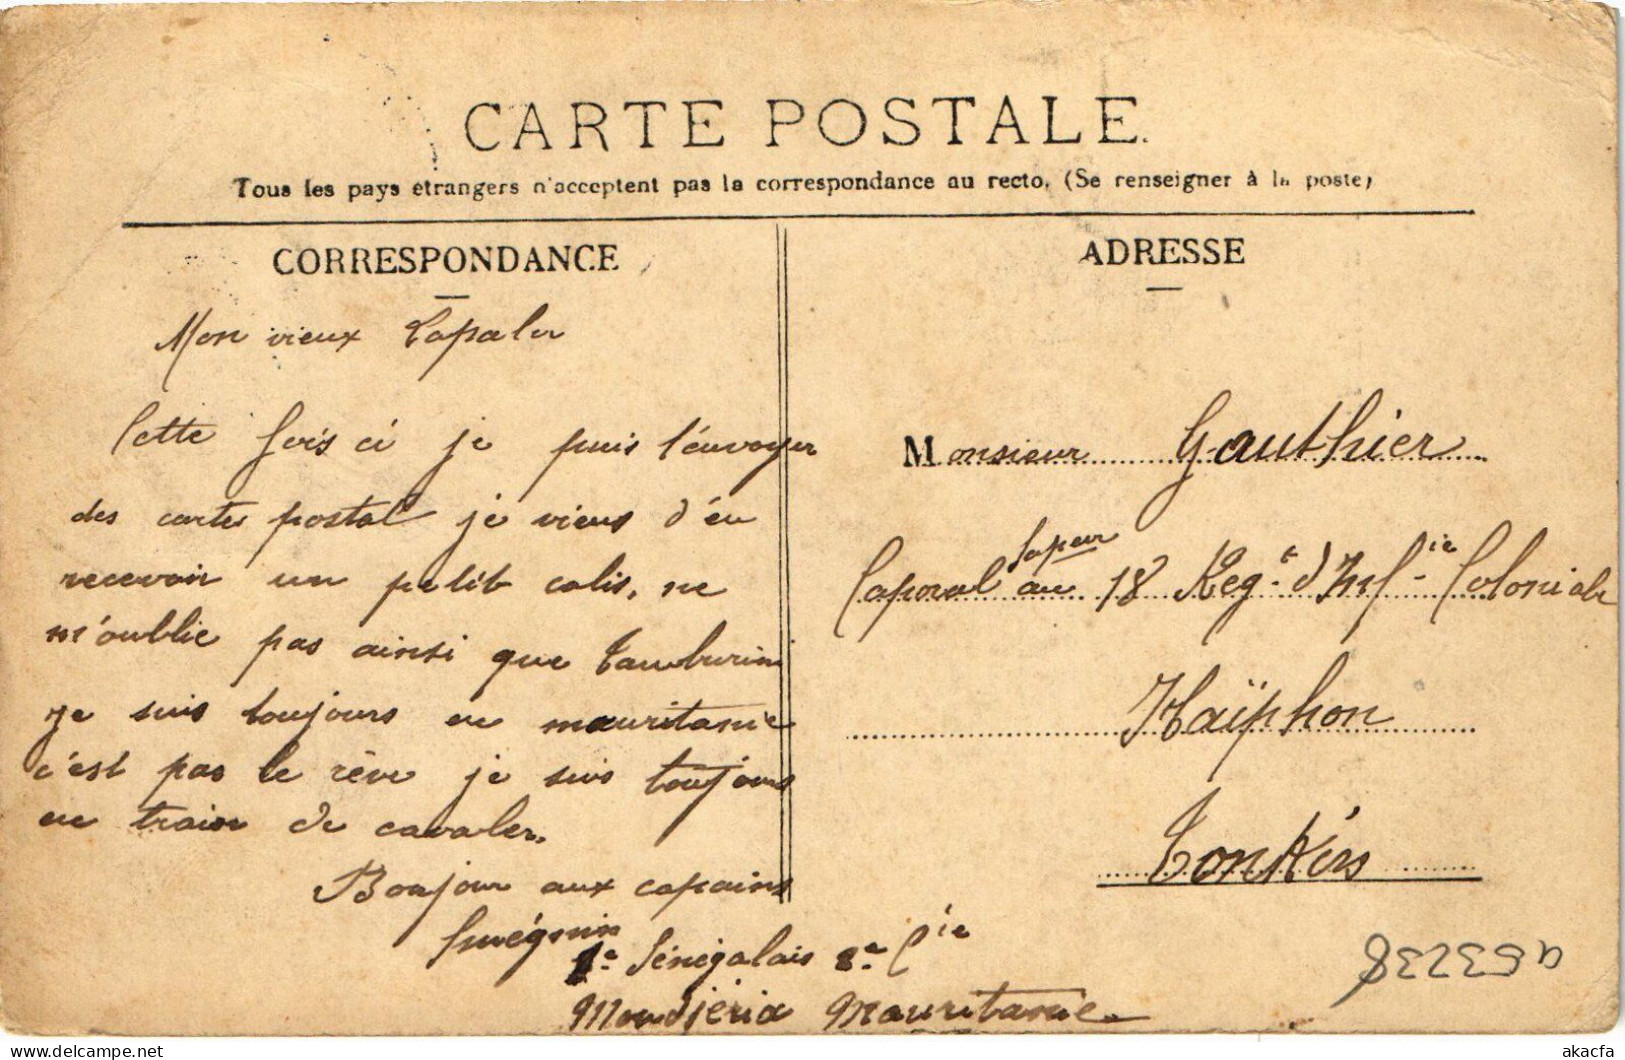 CARTE POSTALE.
Tous les pays étrangers n'acceptent pas la correspondance au recto. (Se renseigner à la poste)
CORRESPONDANCE
Mon vieux
Cette fois ci je puis t'envoyer
des cartes postal je viens d'en
recevoir un petit colis, ne
m'oublie pas ainsi que Tamburini
je suis toujours en mauritanie
c'est pas le rêve je suis toujours
en train de cavaler.
Bonjour aux copains
1e Sénégalais 8e Cie
Moudjéria Mauritanie
ADRESSE
Monsieur Gauthier
Caporal sapeur au 18 Reg.t d'Inf.ie Coloniale
Haïphon
Tonkin
a53238
akacfa